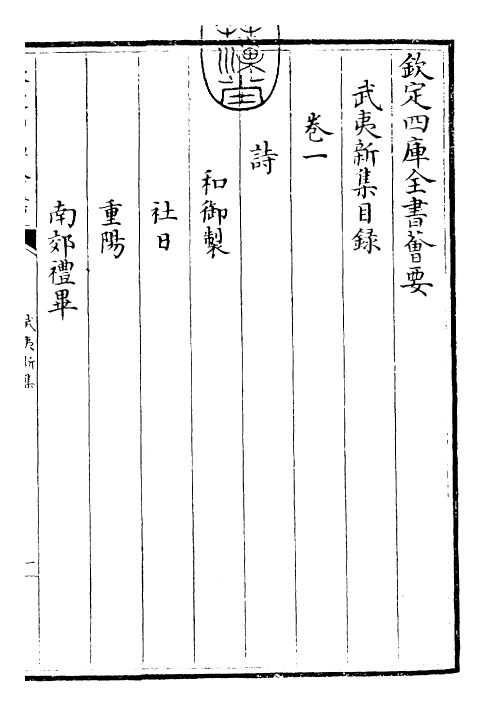 欽定四庫全書薈要
武夷新集目録
卷一
詩
和御製
社日
重陽
南郊禮畢
武夷新集